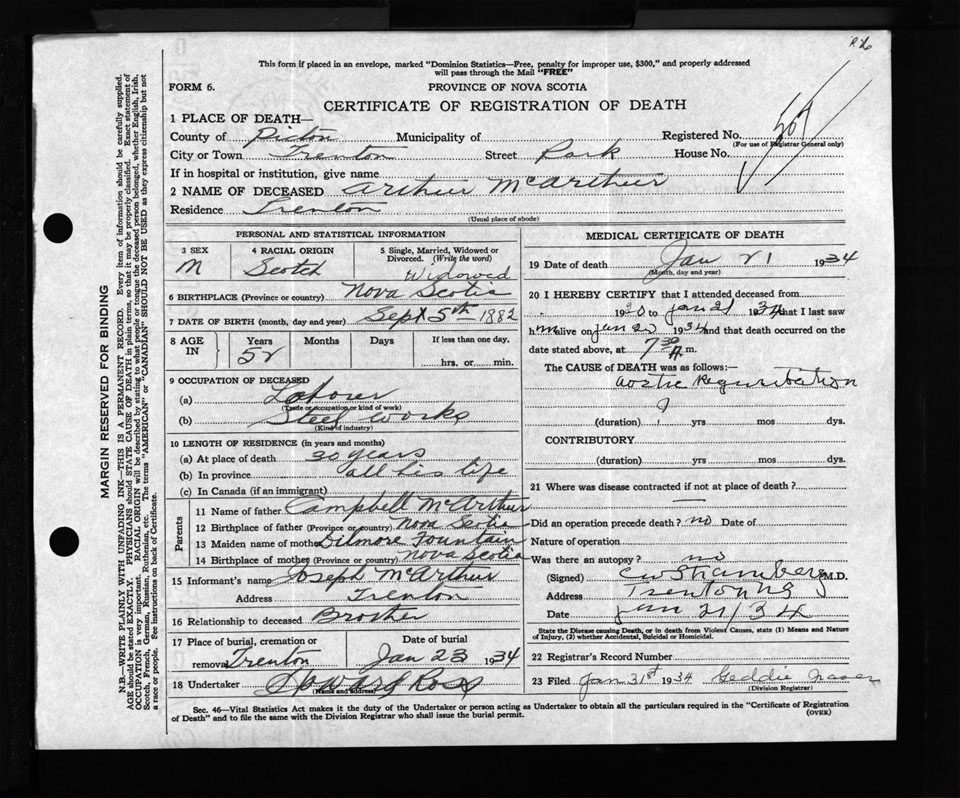 This form if placed in an envelope, marked "Dominion Statistics—Free, penalty for improper use, $300," and properly addressed
will pass through the Mail "FREE"
FORM 6.
PROVINCE OF NOVA SCOTIA
CERTIFICATE OF REGISTRATION OF DEATH
1 PLACE OF DEATH—
County of Pictou Municipality of
Registered No.
(For use of Registrar General only)
City or Town Trenton Street Park House No.
If in hospital or institution, give name
2 NAME OF DECEASED Arthur McArthur
Residence Trenton
(Usual place of abode)
PERSONAL AND STATISTICAL INFORMATION
3 SEX M
4 RACIAL ORIGIN Scotch
5 Single, Married, Widowed or Divorced. (Write the word) Widowed
6 BIRTHPLACE (Province or country) Nova Scotia
7 DATE OF BIRTH (month, day and year) Sept 5th 1882
8 AGE IN Years Months Days If less than one day,
52 hrs. or min.
9 OCCUPATION OF DECEASED
(a) Laborer
(Trade or occupation or kind of work)
(b) Steel Works
(Kind of industry)
10 LENGTH OF RESIDENCE (in years and months)
(a) At place of death 30 years
(b) In province all his life
(c) In Canada (if an immigrant)
Parents
11 Name of father Campbell McArthur
12 Birthplace of father (Province or country) Nova Scotia
13 Maiden name of mother Dilmore Fountain
14 Birthplace of mother (Province or country) Nova Scotia
15 Informant's name Joseph McArthur
Address Trenton
16 Relationship to deceased Brother
17 Place of burial, cremation or removal Trenton
Date of burial Jan 23 1934
18 Undertaker Howard Ross
(Name and address)
MEDICAL CERTIFICATE OF DEATH
19 Date of death Jan 21 1934
(Month, day and year)
20 I HEREBY CERTIFY that I attended deceased from
1930 to Jan 21 1934 that I last saw
him alive on Jan 20 1934 and that death occurred on
date stated above, at 7 30 A.m.
The CAUSE of DEATH was as follows:—
Aortic Regurgitation
(duration) yrs mos dys.
CONTRIBUTORY
(duration) yrs mos dys.
21 Where was disease contracted if not at place of death?
Did an operation precede death? no Date of
Nature of operation
Was there an autopsy? no
(Signed) M.D.
Address Trenton NS
Date Jan 21/34
State the Disease causing Death, or in death from Violent Causes, state (1) Means and Nature
of Injury, (2) whether Accidental, Suicidal or Homicidal.
22 Registrar's Record Number
23 Filed Jan 31st 1934 Geddie Fraser
(Division Registrar)
Sec. 46—Vital Statistics Act makes it the duty of the Undertaker or person acting as Undertaker to obtain all the particulars required in the "Certificate of Registration
of Death" and to file the same with the Division Registrar who shall issue the burial permit.
(OVER)
MARGIN RESERVED FOR BINDING
N.B.—WRITE PLAINLY WITH UNFADING INK—THIS IS A PERMANENT RECORD. Every item of information should be carefully supplied.
AGE should be stated EXACTLY. PHYSICIANS should STATE CAUSE OF DEATH in plain terms, so that it may be properly classified. Exact statement of
OCCUPATION is very important. RACIAL ORIGIN will be described by stating to what people or tongue the deceased person belonged, whether English, Irish,
Scotch, French, German, Russian, Ruthenian, etc. The terms "AMERICAN" or "CANADIAN" SHOULD NOT BE USED as they express citizenship but not
a race or people. See instructions on back of Certificate.